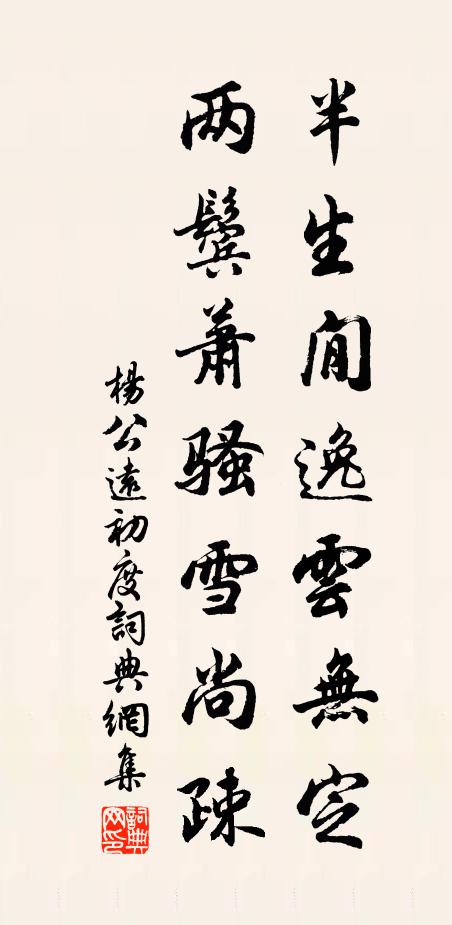 半生閒逸雲無定
两鬓蕭骚雪尚疎
楊公遠初度詞典網集
詞典网印